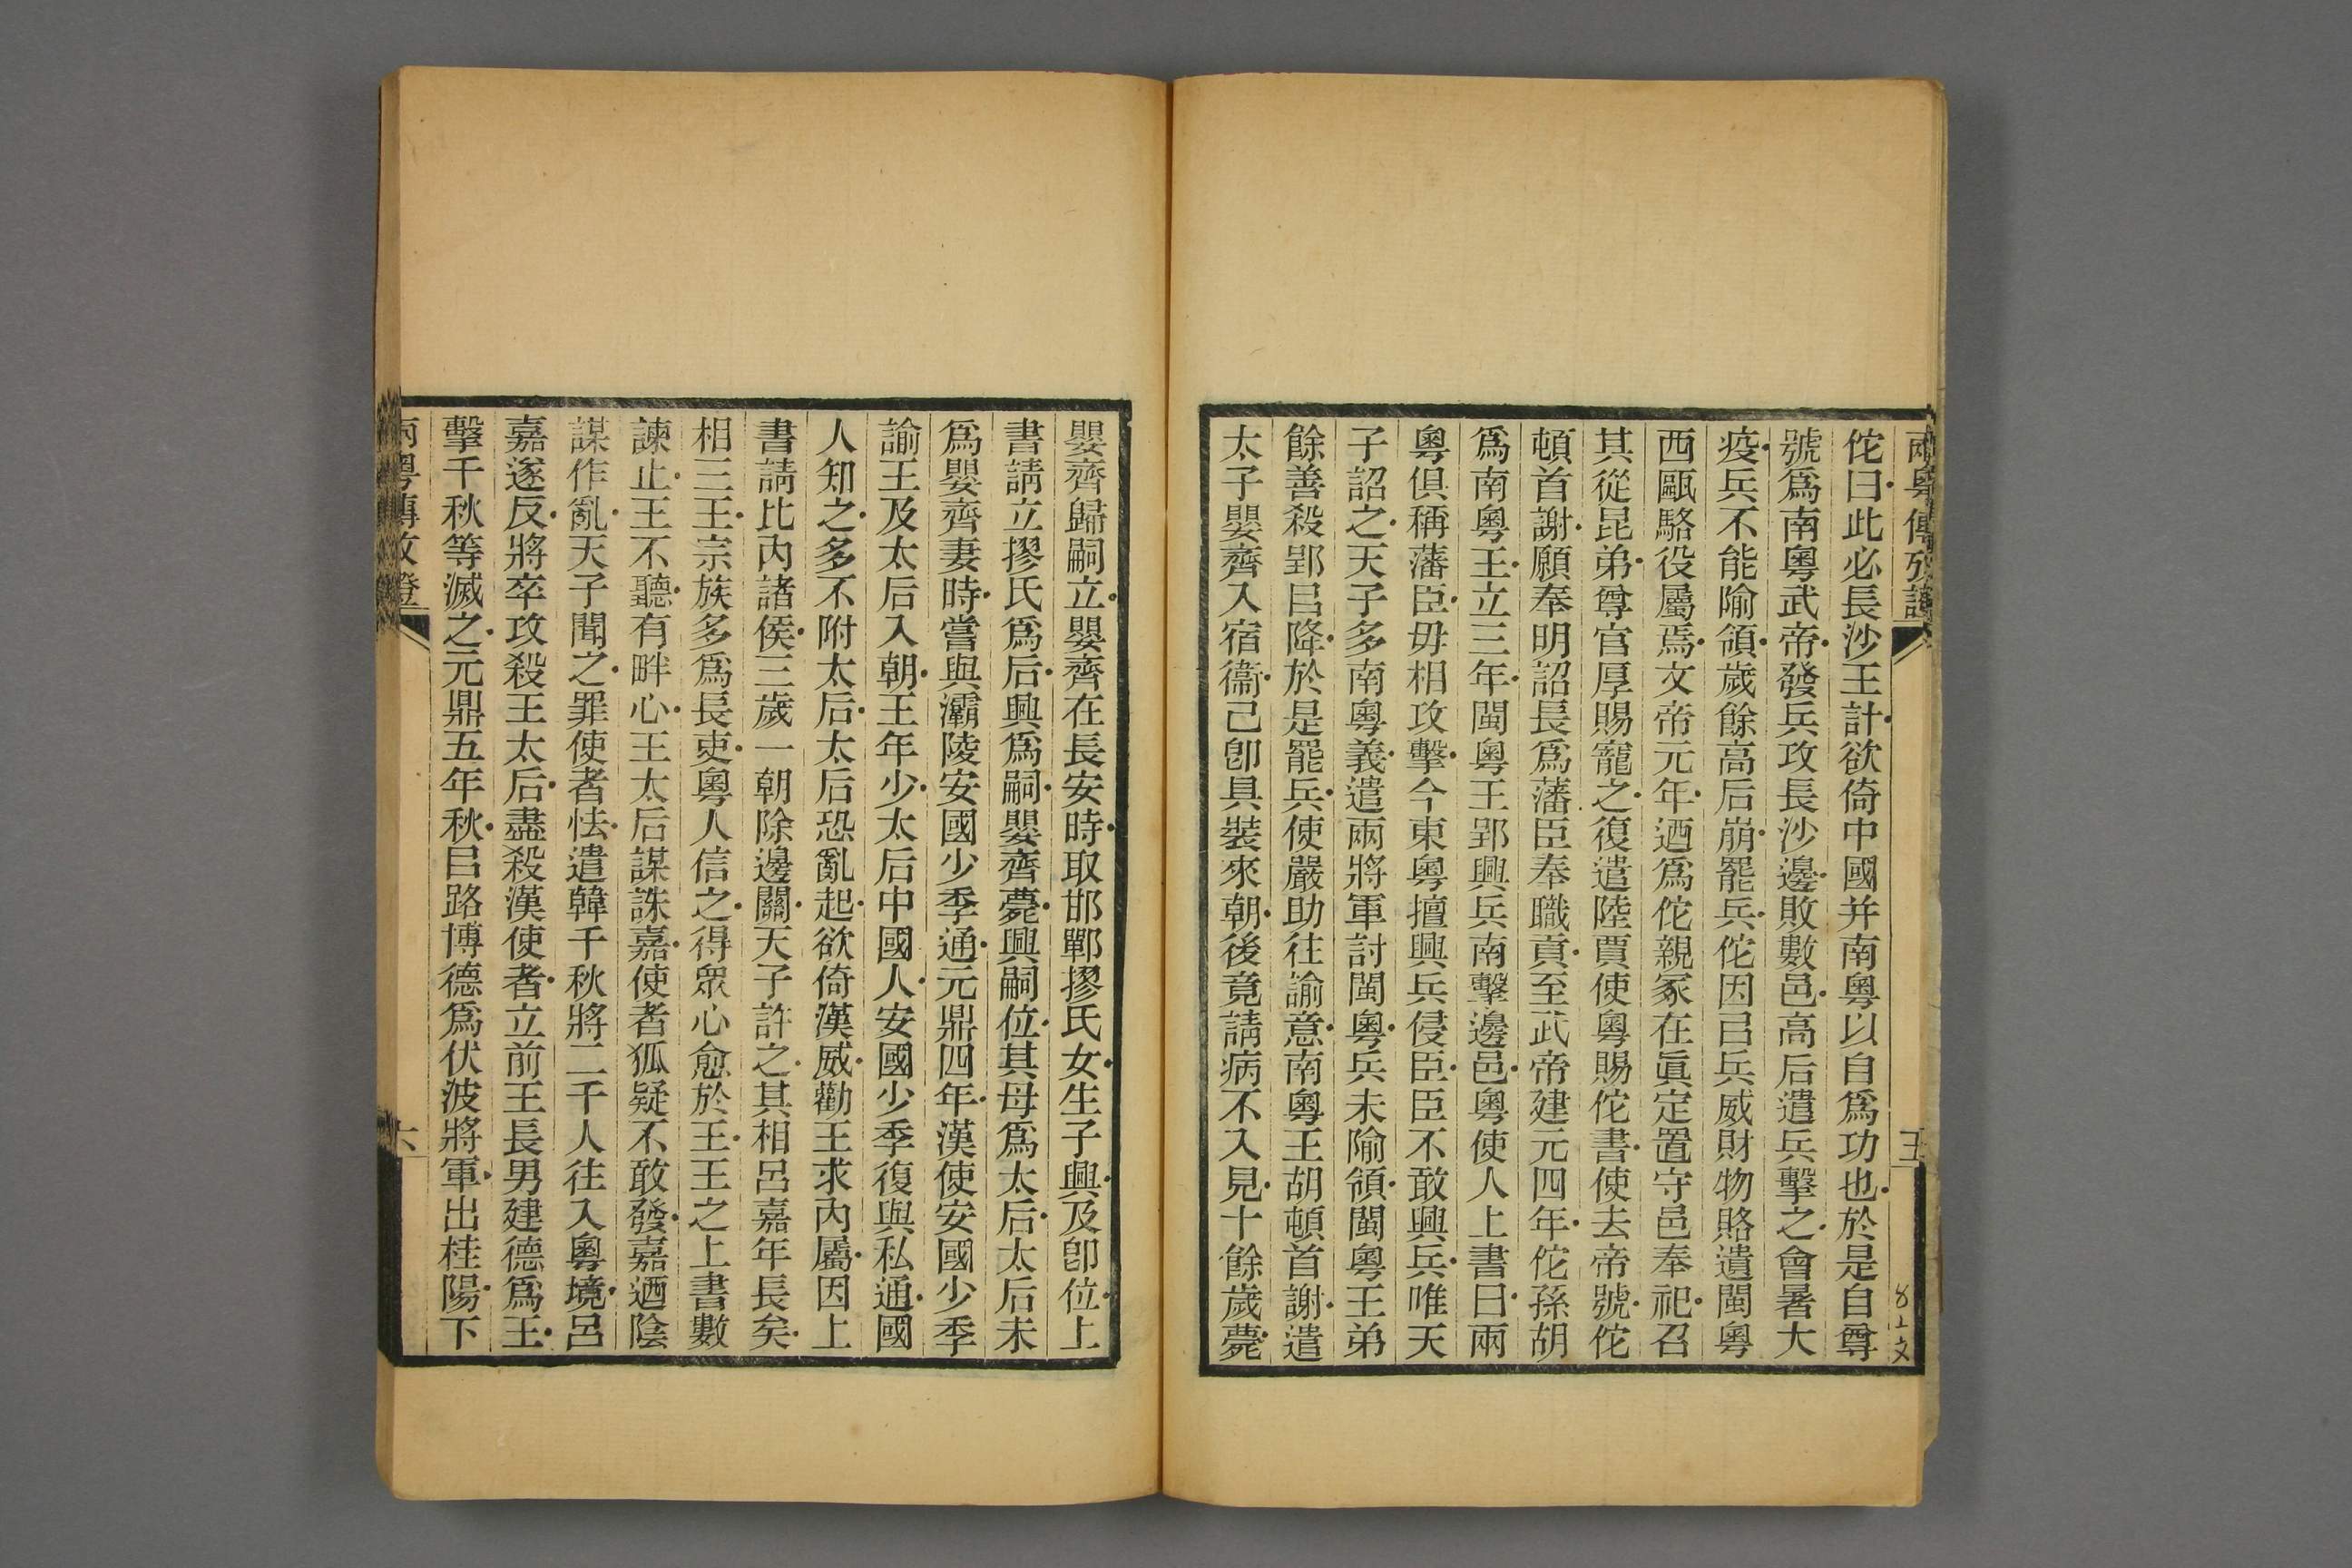 佗曰此必長沙王計欲倚中國并南粵以自爲功也於是自尊
號爲南粵武帝發兵攻長沙邊敗數邑高后遣兵擊之會暑大
疫兵不能隃領歲餘高后崩罷兵佗因㠯兵威財物賂遺閩粵
西甌駱役屬焉文帝元年迺爲佗親冢在眞定置守邑奉祀召
其從昆弟尊官厚賜寵之復遣陸賈使粵賜佗書使去帝號佗
頓首謝願奉明詔長爲藩臣奉職貢至武帝建元四年佗孫胡
爲南粵王立三年閩粵王郢興兵南擊邊邑粵使人上書曰兩
粵俱稱藩臣毋相攻擊今東粵擅興兵侵臣臣不敢興兵唯天
子詔之天子多南粵義遣兩將軍討閩粵兵未隃領閩粵王弟
餘善殺郢㠯降於是罷兵使嚴助往諭意南粵王胡頓首謝遣
太子嬰齊入宿衞己卽具裝來朝後竟請病不入見十餘歲薨
嬰齊歸嗣立嬰齊在長安時取邯鄲摎氏女生子興及卽位上
書請立摎氏爲后興爲嗣嬰齊薨興嗣位其母爲太后太后未
爲嬰齊妻時嘗與灞陵安國少季通元鼎四年漢使安國少季
諭王及太后入朝王年少太后中國人安國少季復與私通國
人知之多不附太后太后恐亂起欲倚漢威勸王求內屬因上
書請比內諸侯三歲一朝除邊關天子許之其相呂嘉年長矣
相三王宗族多爲長吏粵人信之得眾心愈於王王之上書數
諫止王不聽有畔心王太后謀誅嘉使者狐疑不敢發嘉迺陰
謀作亂天子聞之罪使者怯遣韓千秋將二千人往入粵境呂
嘉遂反將卒攻殺王太后盡殺漢使者立前王長男建德爲王
擊千秋等滅之元鼎五年秋㠯路博德爲伏波將軍出桂陽下
兩粵傳攷證
六